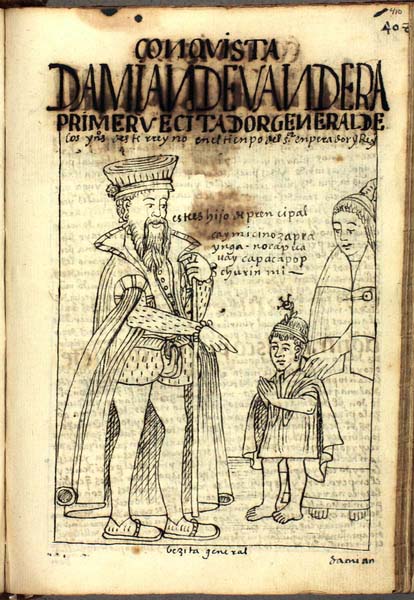 410
402
CONQVISTA
DAMIAN DEVANDERA
PRIMER VECITADOR GENERAL DE
los yns deste rreyno en el tienpo del sr enperador y Rey
estes hijo de prencipal
caymi cinozapra
ynga - nocap ua
uay capacapop
churin mi
bezita general
damian